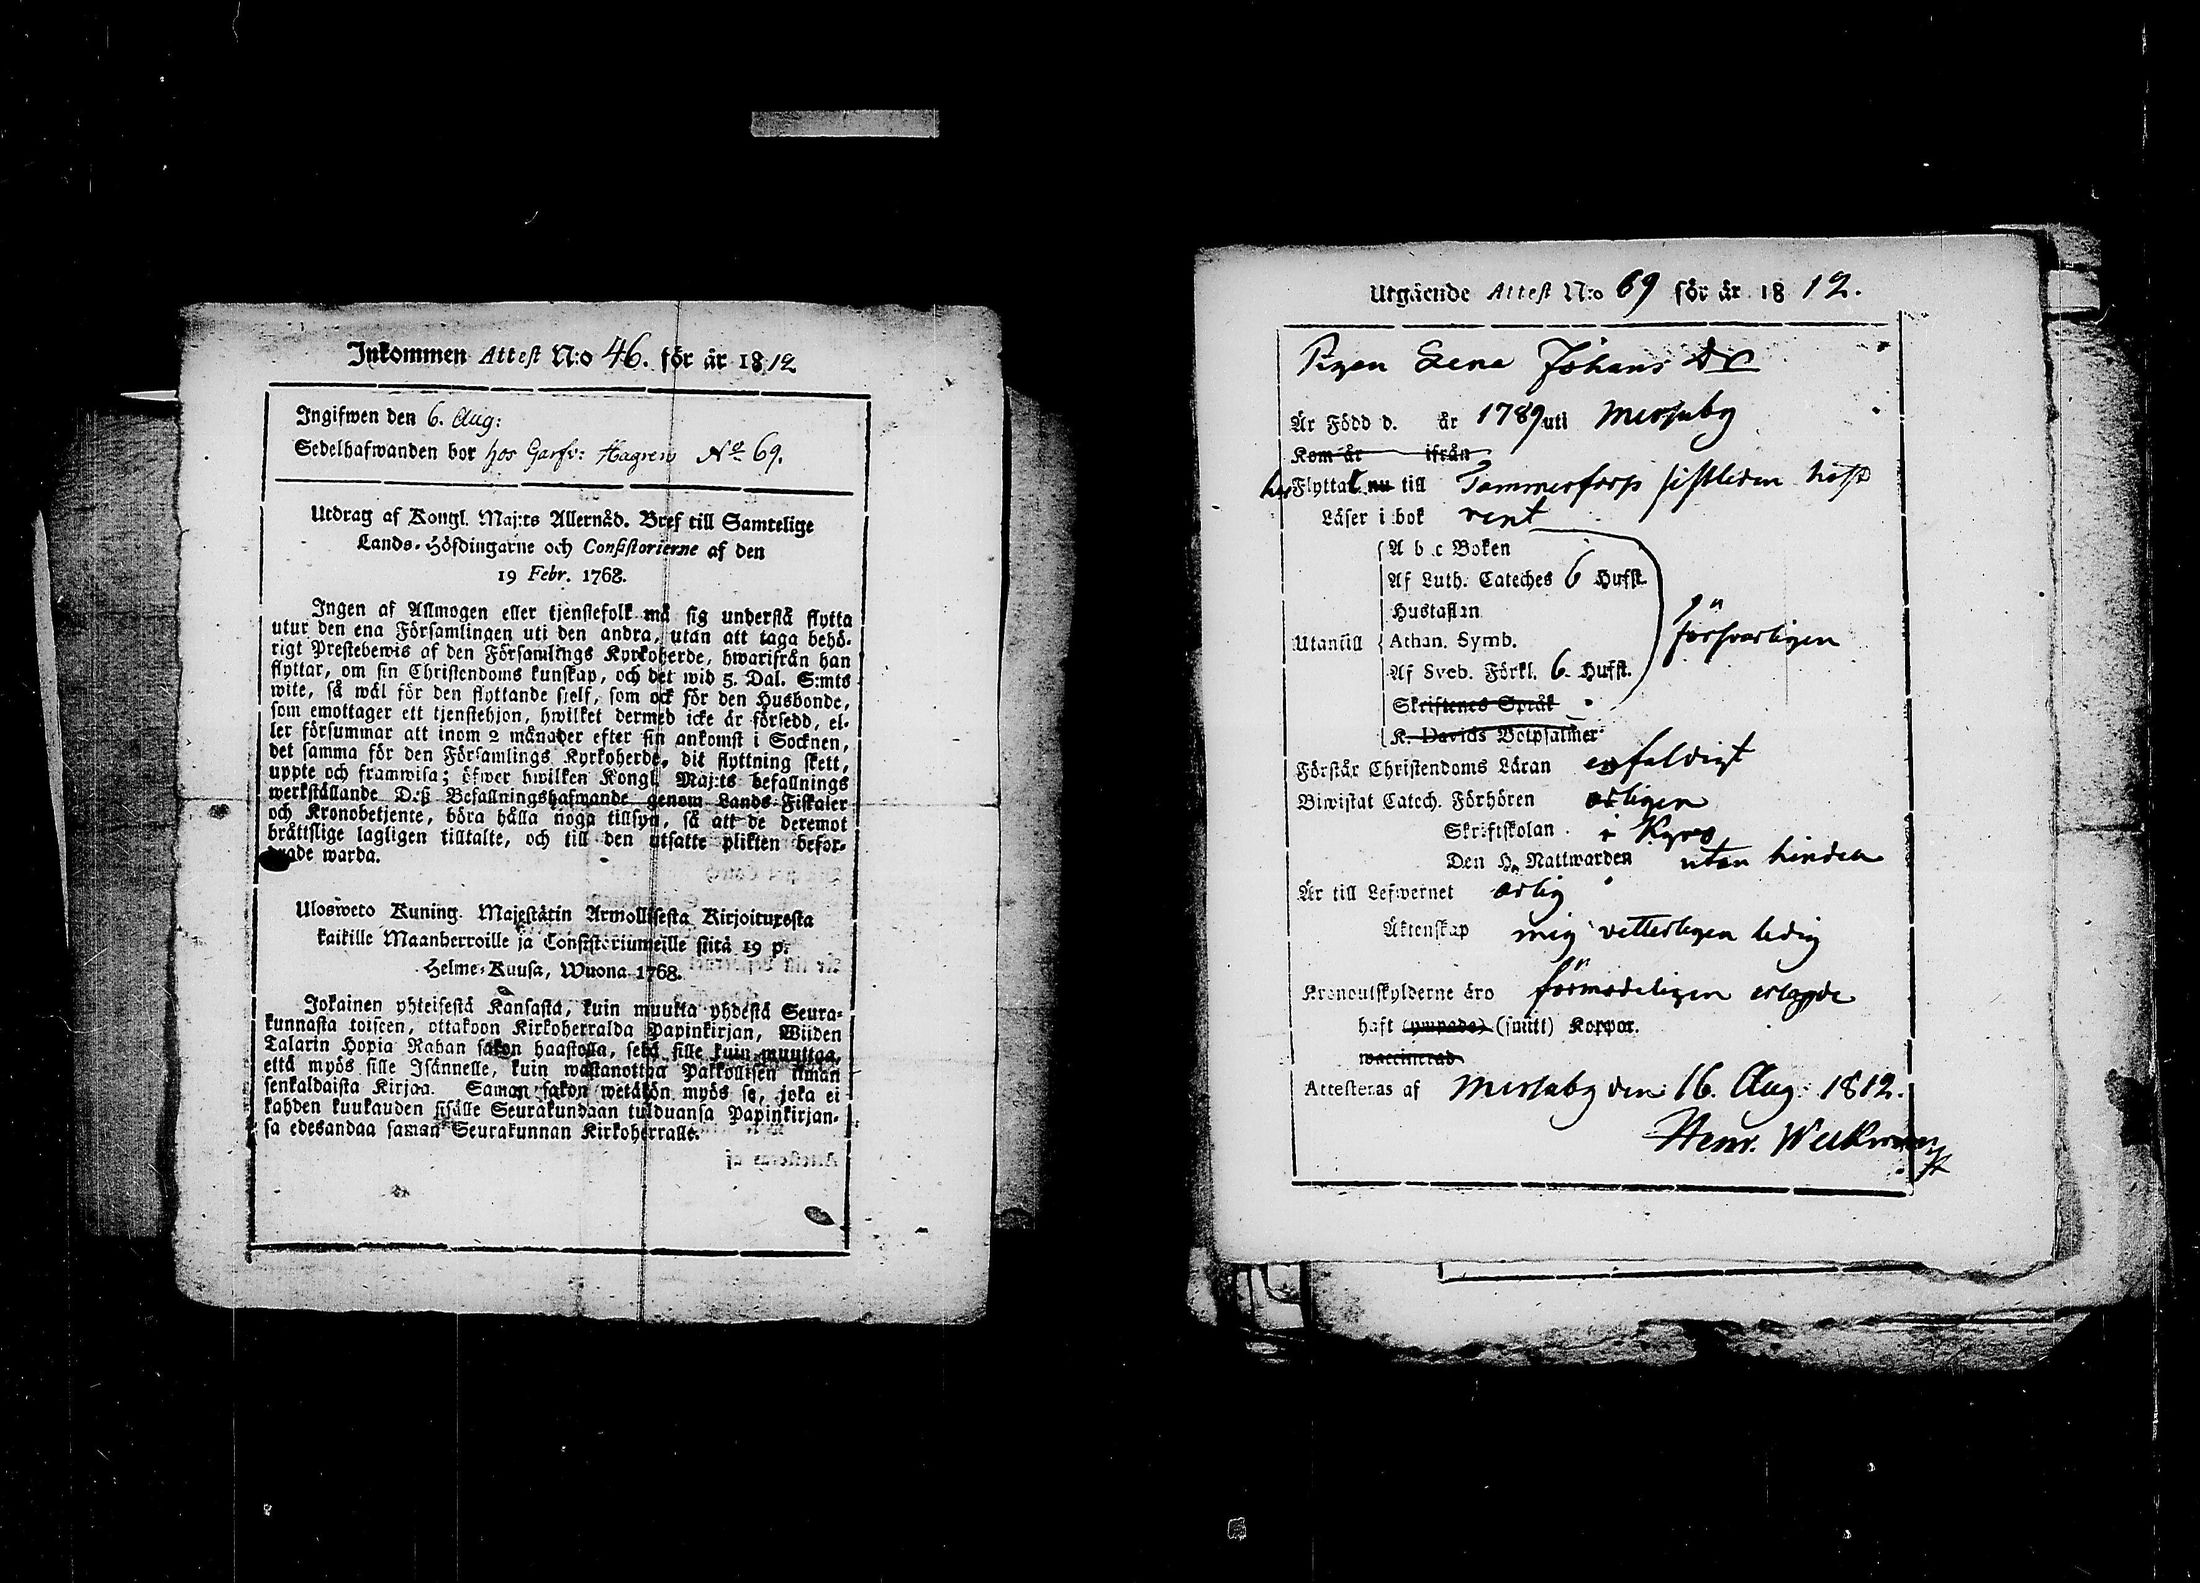 Inkommen Attest N:o 46. för år 1812
Ingifwen den 6. Aug:
Sedelhafwanden bor hos Garfv: Hagren No 69.
Utdrag af Kongl. Maj:ts Allernåd. Bref till Samtelige
Lands-Höfdingarne och Consistorierne af den
19 Febr. 1768.
Ingen af Allmogen eller tjenstefolk må sig understå flytta
utur den ena Församlingen uti den andra, utan att taga behö-
rigt Prestebewis af den Församlings Kyrkoherde, hwarifrån han
flyttar, om sin Christendoms kunskap, och det wid 5. Dal. S:mts
wite, så wäl för den flyttande sjelf, som ock för den Husbonde,
som emottager ett tjenstehjon, hwilket dermed icke är försedd, el-
ler försummar att inom 2 månader efter sin ankomst i Socknen,
det samma för den Församlings Kyrkoherde, dit flyttning skett,
uppte och framwisa; öfwer hwilken Kongl. Maj:ts befallnings
werkställande Deß Befallningshafwande genom Lands-Fiskaler
och Kronobetjente, böra hålla noga tillsyn, så att de deremot
bråttslige lagligen tilltalte, och till den utsatte plikten befor-
drade warda.
Ulosweto Kuning. Majestätin Armollisesta Kirjoituxesta
kaikille Maanherroille ja Consistoriumeille siitä 19 p.
Helme-Kuusa, Wuona 1768.
Jokainen yhteisestä Kansasta, kuin muutta yhdestä Seura-
kunnasta toiseen, ottakoon Kirkoherralda Papinkirjan, Wiiden
Talarin Hopia Rahan sakon haastolla, sekä sille kuin muuttaa,
että myös sille Isännelle, kuin wastanottaa Pakkollisen ilman
senkaldaista Kirjaa. Saman sakon wetäkön myös se, joka ei
kahden kuukauden sisälle Seurakundaan tulduansa Papinkirjan-
sa edesandaa saman Seurakunnan Kirkoherralle.
Attesteras af
Utgående Attest N:o 69 för år 1812.
Pigan Lena Johans Dr
Är Född d. år 1789 uti Messuby
Kom år ifrån
har Flyttat nu till Tammerfors sistleden höst
Läser i bok rent
A b c Boken
Af Luth. Cateches 6 Hufst.
Hustaflan
Utantill Athan. Symb. försvarligen
Af Sveb. Förkl. 6. Hufst.
Skriftenes Språk
K. Davids Botpsalmer
Förstår Christendoms Läran enfaldigt
Biwistat Catech. Förhören årligen
Skriftskolan i Kyros
Den H. Nattwarden utan hinder
Är till Lefwernet ärlig
Äktenskap mig vetterligen ledig
Kronoutskylderne äro förmodeligen erlagde
haft (ympade) (smitt) Koppor.
waccinerad
Attesteras af Messuby den 16. Aug: 1812.
Henr. Weckman